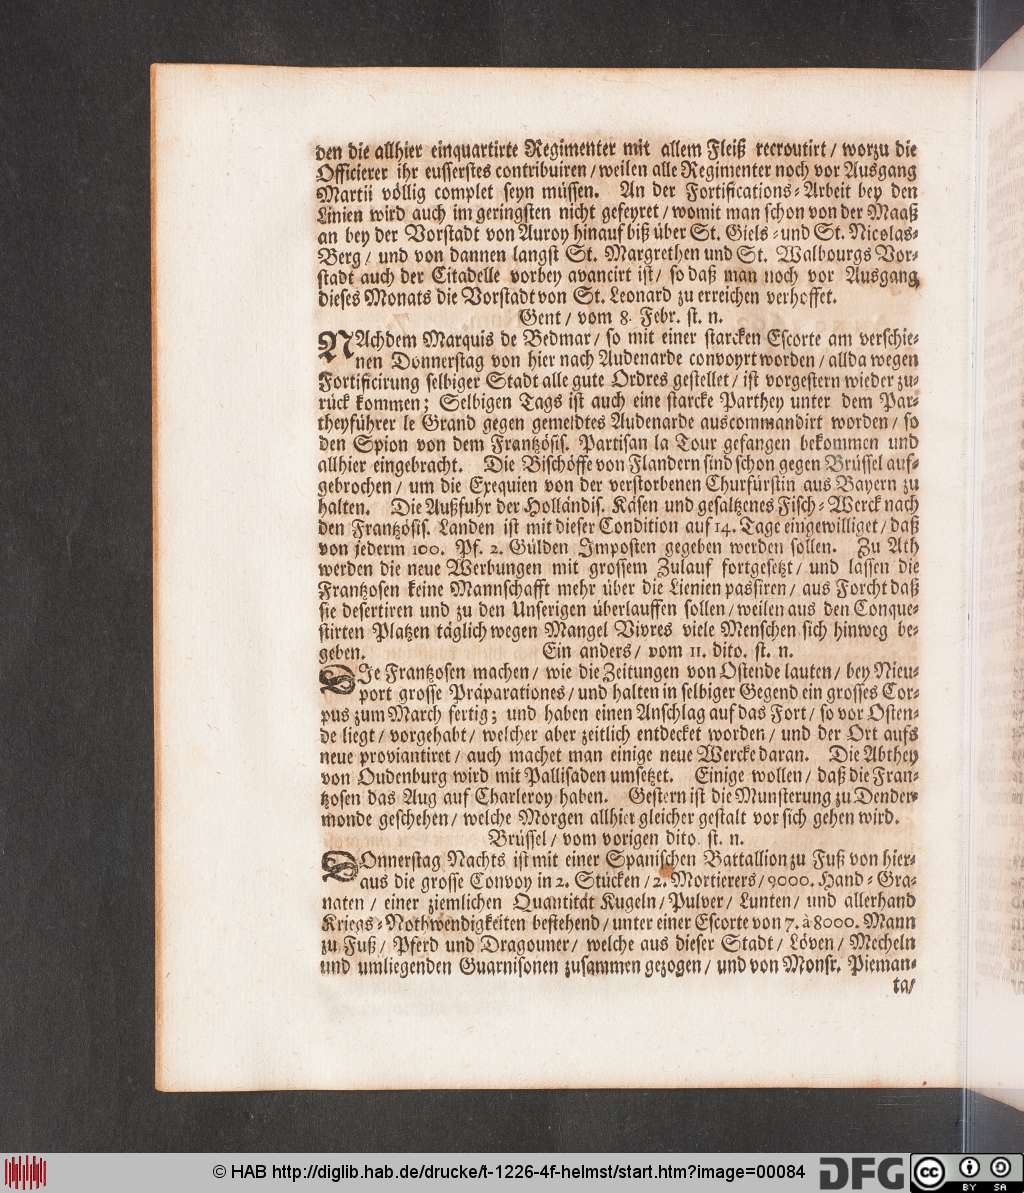 den die allhier einquartirte Regimenter mit allem Fleiß recroutirt / worzu die
Officierer ihr eusserstes contribuiren / weilen alle Regimenter noch vor Ausgang
Martii völlig complet seyn müssen. An der Fortifications-Arbeit bey den
Linien wird auch im geringsten nicht gefeyret / womit man schon von der Maaß
an bey der Vorstadt von Auroy hinauf biß über St. Giels- und St. Nicolas-
Berg / und von dannen langst St. Margrethen und St. Walbourgs Vor-
stadt auch der Citadelle vorbey avancirt ist / so daß man noch vor Ausgang
dieses Monats die Vorstadt von St. Leonard zu erreichen verhoffet.
Gent / vom 8. Febr. st. n.
NAchdem Marquis de Bedmar / so mit einer starcken Escorte am verschie-
nen Donnerstag von hier nach Audenarde convoyrt worden / allda wegen
Fortificirung selbiger Stadt alle gute Ordres gestellet / ist vorgestern wieder zu-
rück kommen; Selbigen Tags ist auch eine starcke Parthey unter dem Par-
theyführer le Grand gegen gemeldtes Audenarde auscommandirt worden / so
den Spion von dem Frantzösis. Partisan la Tour gefangen bekommen und
allhier eingebracht. Die Bischöffe von Flandern sind schon gegen Brüssel auf-
gebrochen / um die Exequien von der verstorbenen Churfürstin aus Bayern zu
halten. Die Außfuhr der Holländis. Käsen und gesaltzenes Fisch-Werck nach
den Frantzösis. Landen ist mit dieser Condition auf 14. Tage eingewilliget / daß
von jederm 100. Pf. 2. Gülden Imposten gegeben werden sollen. Zu Ath
werden die neue Werbungen mit grossem Zulauf fortgesetzt / und lassen die
Frantzosen keine Mannschafft mehr über die Lienien passiren / aus Forcht daß
sie desertiren und zu den Unserigen überlauffen sollen / weilen aus den Conque-
stirten Platzen täglich wegen Mangel Vivres viele Menschen sich hinweg be-
geben. Ein anders / vom 11. dito. st. n.
DIe Frantzosen machen / wie die Zeitungen von Ostende lauten / bey Nieu-
port grosse Präparationes / und halten in selbiger Gegend ein grosses Cor-
pus zum March fertig; und haben einen Anschlag auf das Fort / so vor Osten-
de liegt / vorgehabt / welcher aber zeitlich entdecket worden / und der Ort aufs
neue proviantiret / auch machet man einige neue Wercke daran. Die Abthey
von Oudenburg wird mit Pallisaden umsetzet. Einige wollen / daß die Fran-
tzosen das Aug auf Charleroy haben. Gestern ist die Munsterung zu Dender-
monde geschehen / welche Morgen allhier gleicher gestalt vor sich gehen wird.
Brüssel / vom vorigen dito. st. n.
DOnnerstag Nachts ist mit einer Spanischen Battallion zu Fuß von hier-
aus die grosse Convoy in 2. Stücken / 2. Mortierers / 9000. Hand-Gra-
naten / einer ziemlichen Quantität Kugeln / Pulver / Lunten / und allerhand
Kriegs-Nothwendigkeiten bestehend / unter einer Escorte von 7. à 8000. Mann
zu Fuß / Pferd und Dragouner / welche aus dieser Stadt / Löven / Mecheln
und umliegenden Guarnisonen zusammen gezogen / und von Monsr. Pieman-
ta /
© HAB http://diglib.hab.de/drucke/t-1226-4f-helmst/start.htm?image=00084
DFG
cc
BY SA